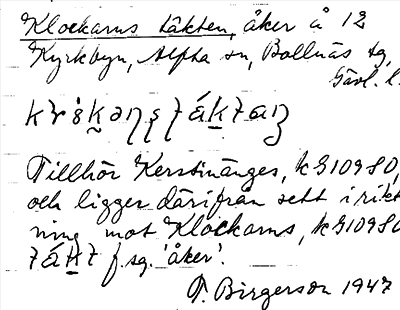 Klockarns täkten, åker å 12
Kyrkbyn, Alfta sn, Bollnäs tg,
Gävl. l.
Tillhör Kerstinänges, kg 10980,
och ligger därifrån sett i rikt
ning mot Klockarns, kg 10980
f.sg. 'åker'.
T. Birgerson 1947